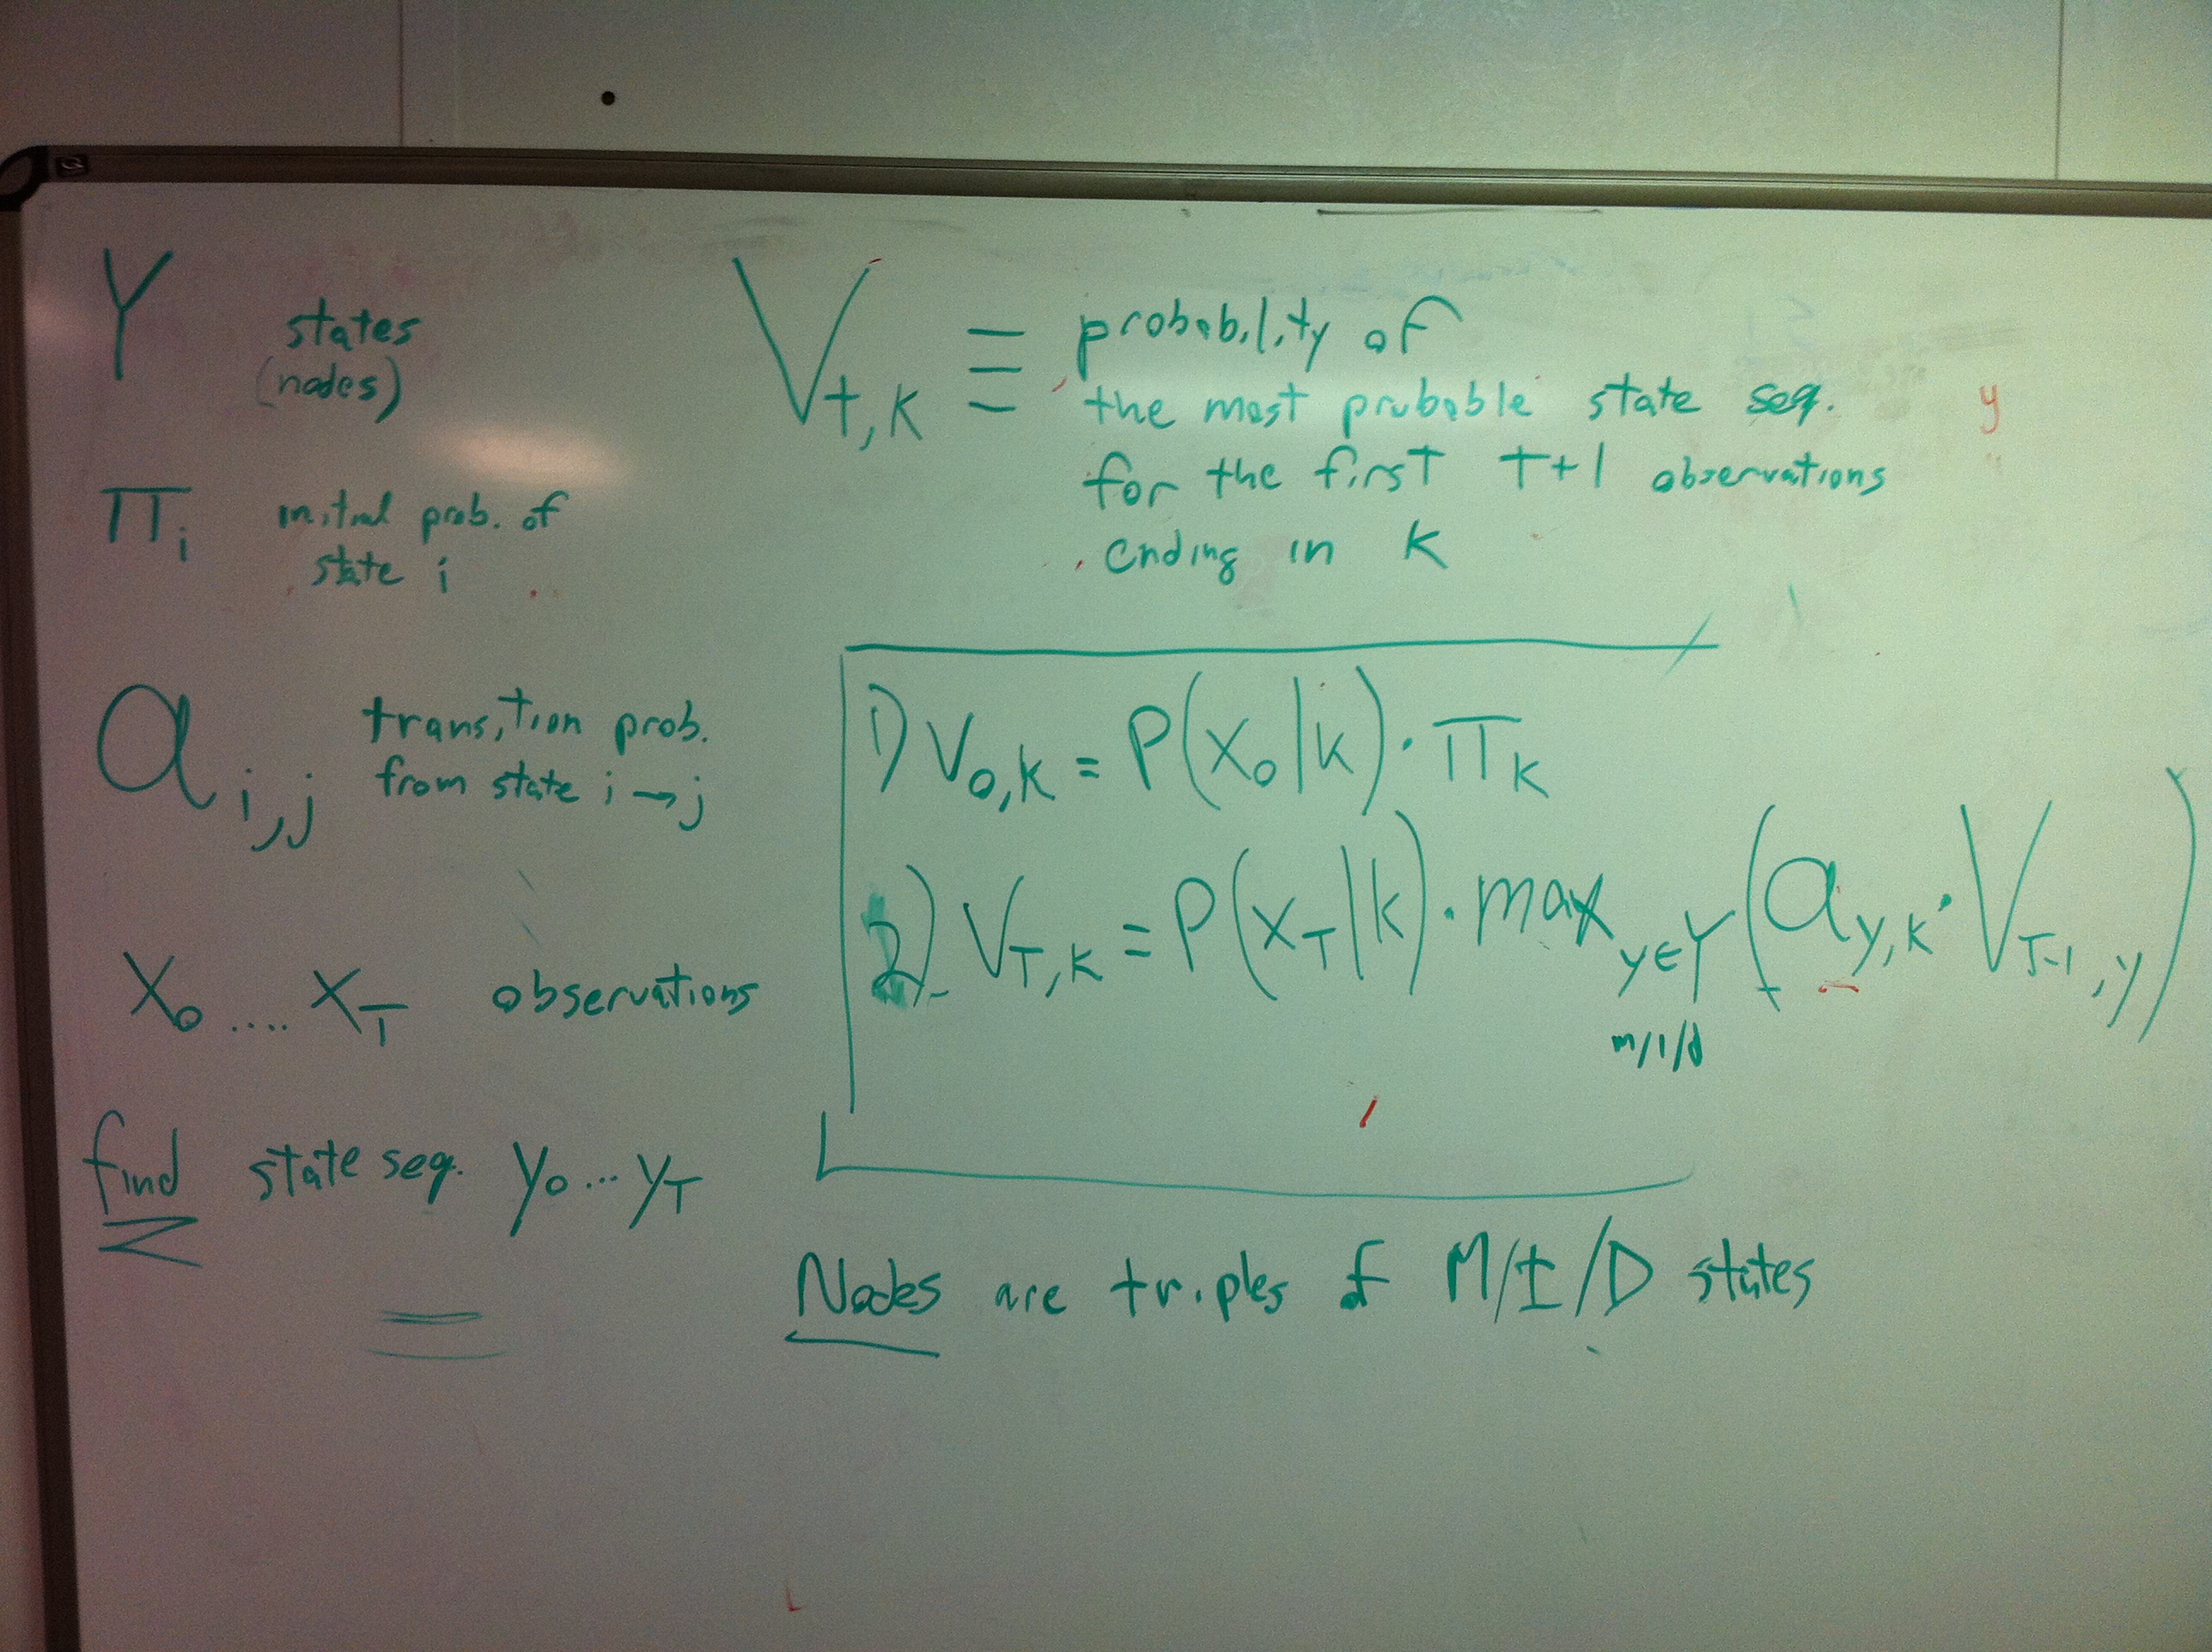 Y states
(nodes)
π_i initial prob. of
state i
a_{i,j} transition prob.
from state i → j
x_0 .... x_T observations
find state seq. y_0 ... y_T
V_{t,k} ≡ probability of
the most probable state seq.
for the first T+1 observations
ending in k
y
1) V_{0,k} = P(x_0|k) · π_k
2) V_{T,k} = P(x_T|k) · max_{y∈Y} (a_{y,k} · V_{T-1,y})
m/i/d
Nodes are triples of M/I/D states